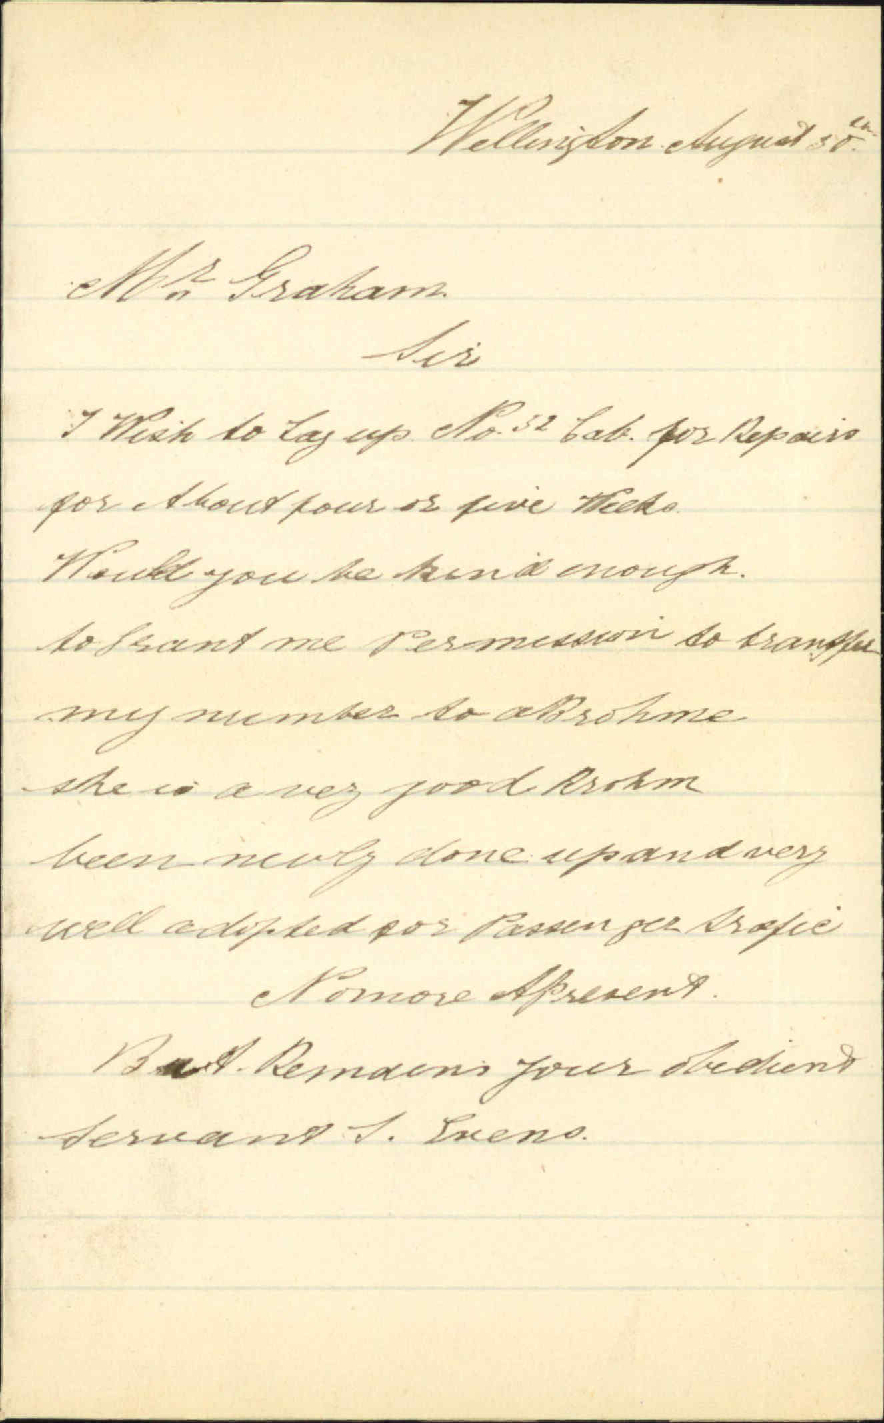 Wellington August 30th
Mr Graham.
Sir
I Wish to Lay up No. 52 Cab. for Repairs
for About four or five Weeks
Would you be kind enough.
to Grant me Permission to transfer
my number to a Brohme
she is a very good Brohm
been newly done up and very
well adopted for Passenger trafic
No more APresent.
But. Remains your obedient
Servant S. Evens.